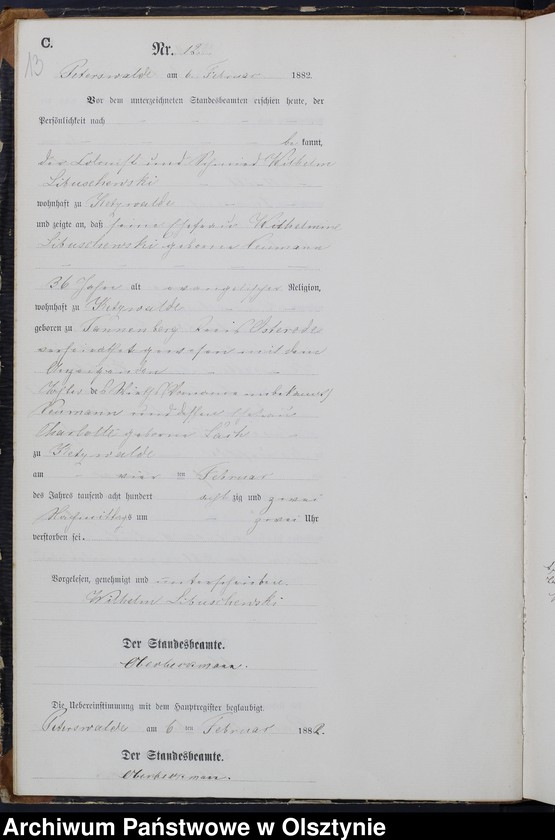 C.
Nr. 13
13
Peterswalde am 6 Februar 1882.
Vor dem unterzeichneten Standesbeamten erschien heute, der
Persönlichkeit nach
bekannt,
der und Schmied Wilhelm
Libuschewski
wohnhaft zu
und zeigte an, daß seine Ehefrau Wilhelmine
Libuschewski geborne Neumann
36 Jahre alt evangelischer Religion,
wohnhaft zu
geboren zu Tannenberg Kreis Osterode
verheirathet gewesen mit dem
Anzeigenden
Tochter des Wirths (Vorname unbekannt)
Neumann und dessen Ehefrau
Charlotte geborne
zu
am vier ten Februar
des Jahres tausend acht hundert achtzig und zwei
Nachmittags um zwei Uhr
verstorben sei.
Vorgelesen, genehmigt und unterschrieben.
Wilhelm Libuschewski
Der Standesbeamte.
Die Uebereinstimmung mit dem Hauptregister beglaubigt.
Peterswalde am 6 ten Februar 1882.
Der Standesbeamte.
Archiwum Państwowe w Olsztynie